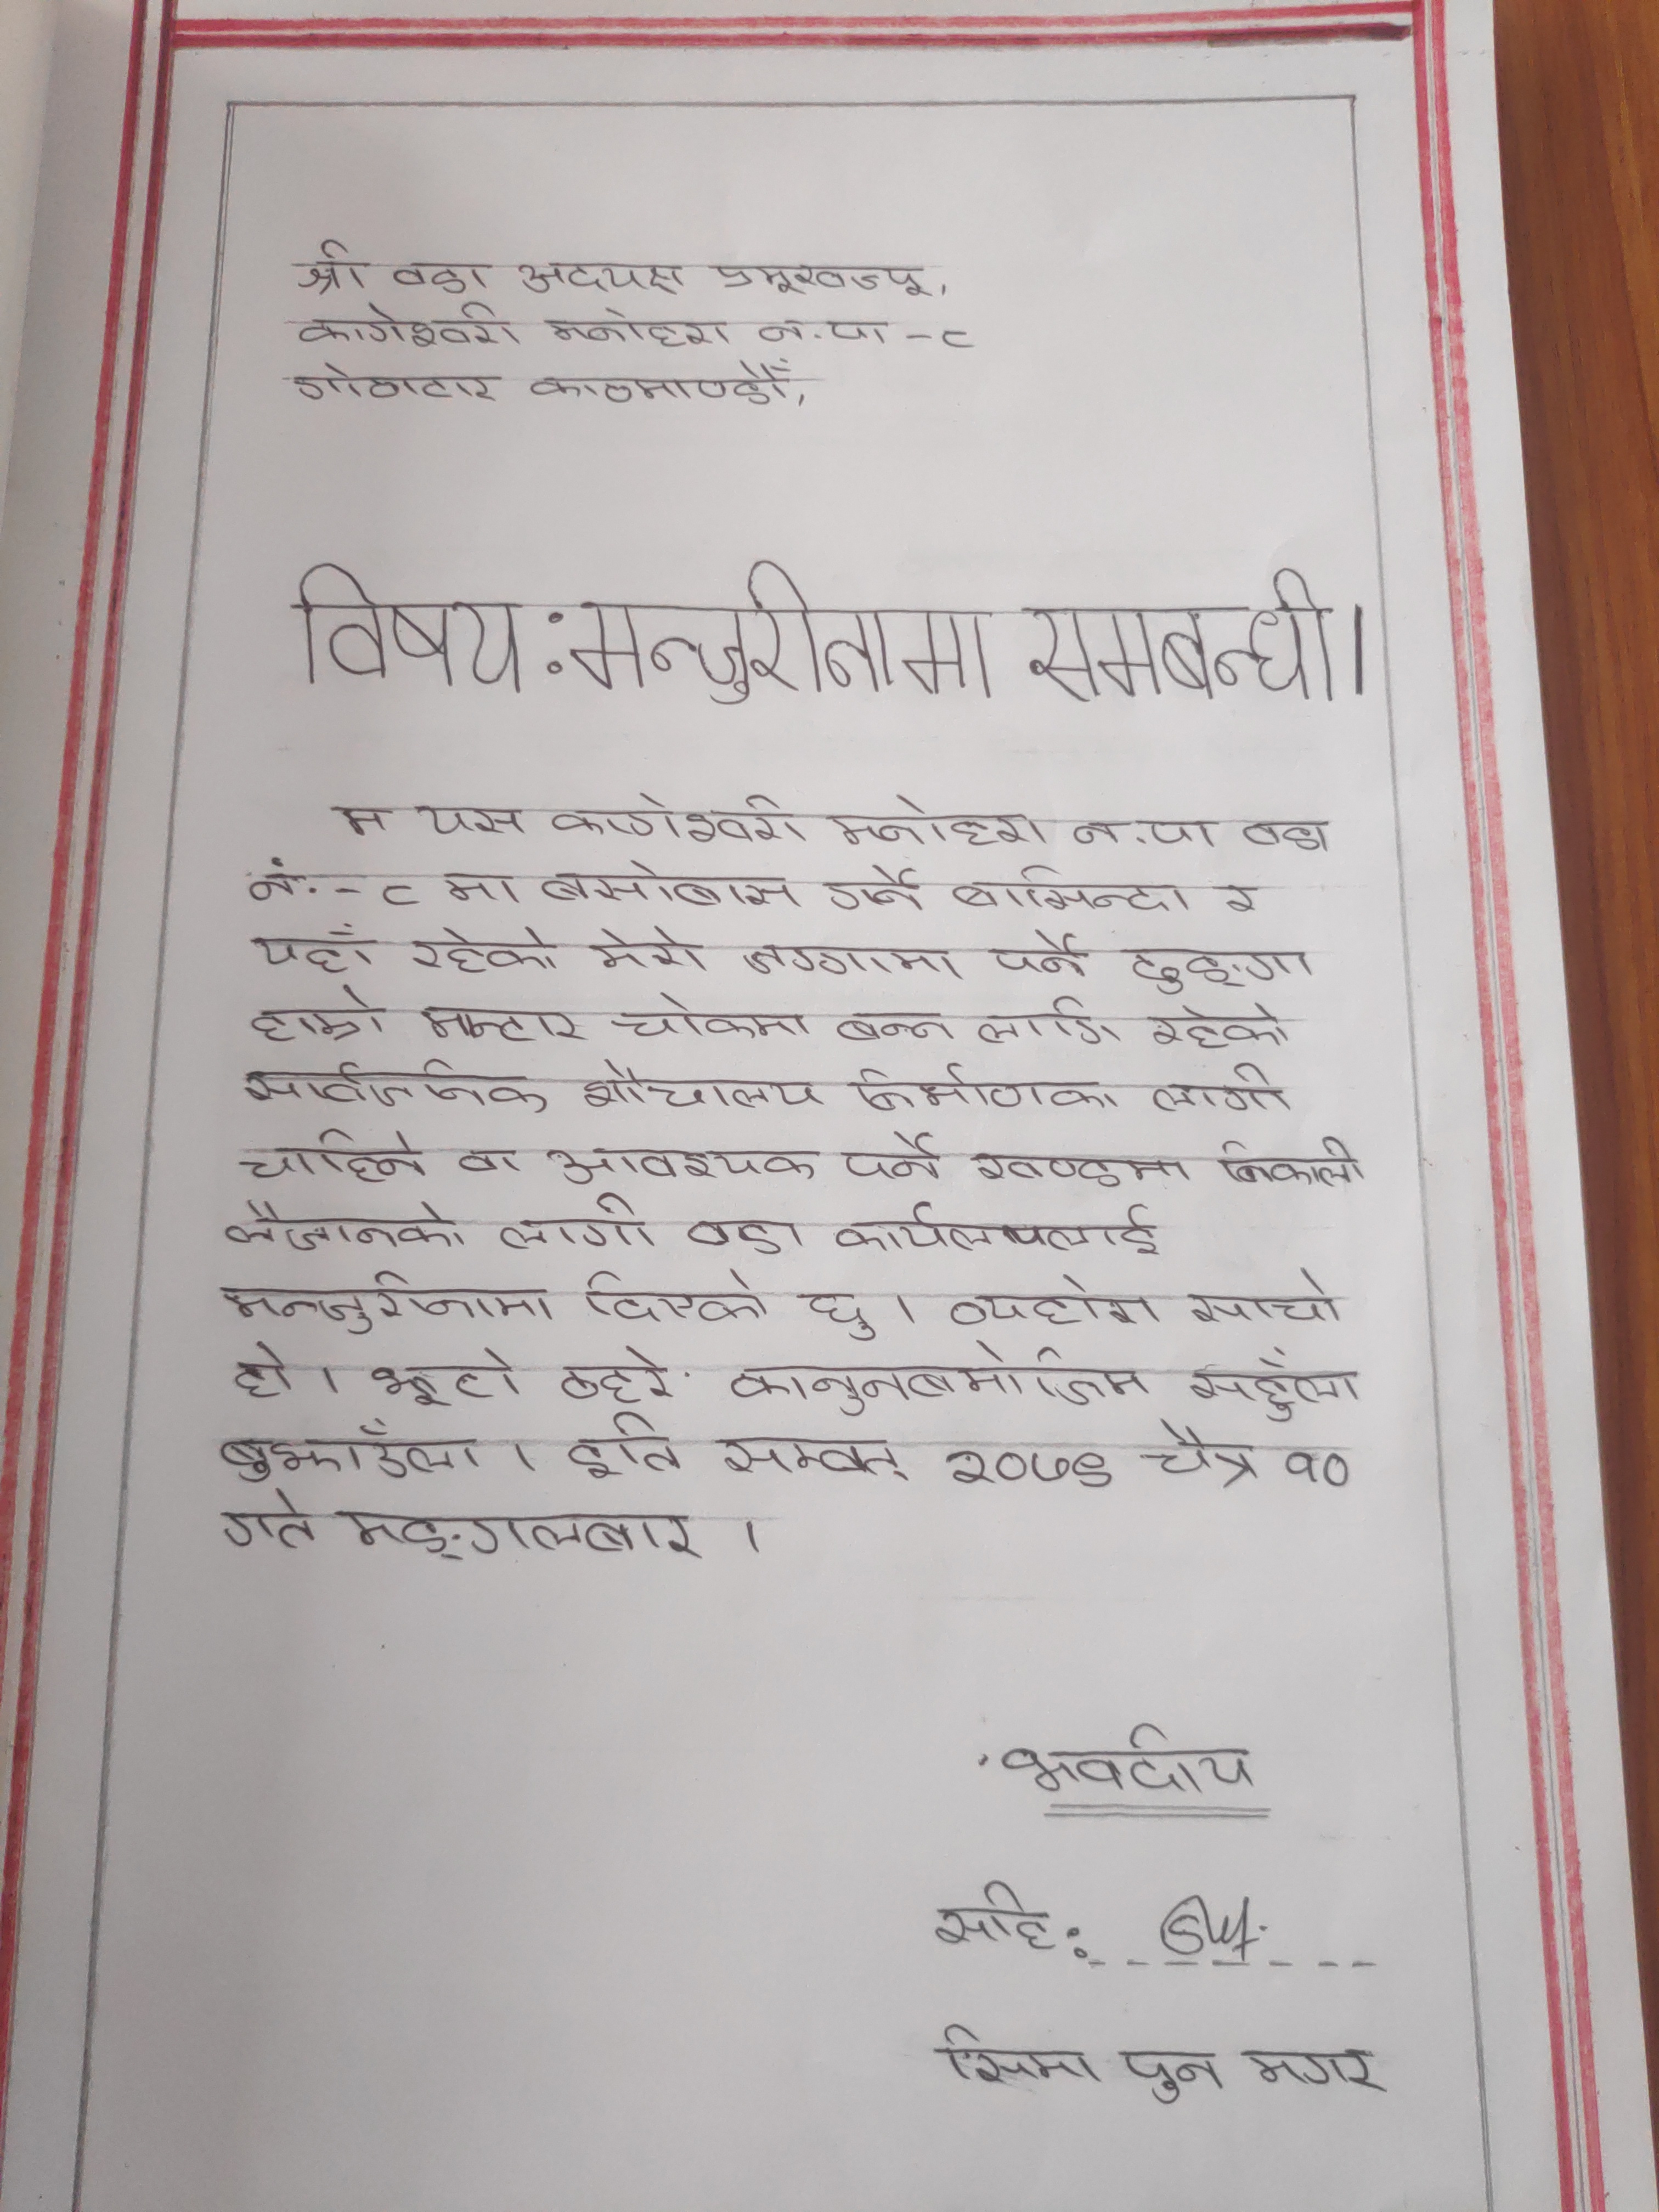 श्री वडा अदयक्ष प्रमूखज्यू,
कागेश्वरी मनोहरा न.पा -८
गोठाटार काठमाण्डौँ,
विषय:मन्जुरीनामा समबन्धी।
म यस कागेश्वरी मनोहरा न.पा वडा
नं.-८ मा बसोबास गर्ने बासिन्दा र
यहाँ रहेको मेरो जग्गामा पर्ने ढुङ्गा
हाम्रो मन्टार चोकमा बन्न लागि रहेको
सार्वजनिक शौचालय निर्माणका लागी
चाहिने वा आवश्यक पर्ने खण्डमा निकाली
लैजानको लागी वडा कार्यलयलाई
मन्जुरीनामा दिएको छु। व्यहोरा साचो
हो। झूटो ठहरे कानुनबमोजिम सहुँला
बुझाउँला। इति सम्वत् २०७९ चैत्र १०
गते मङ्गलबार।
भवदीय
सहि:
सिमा पुन मगर